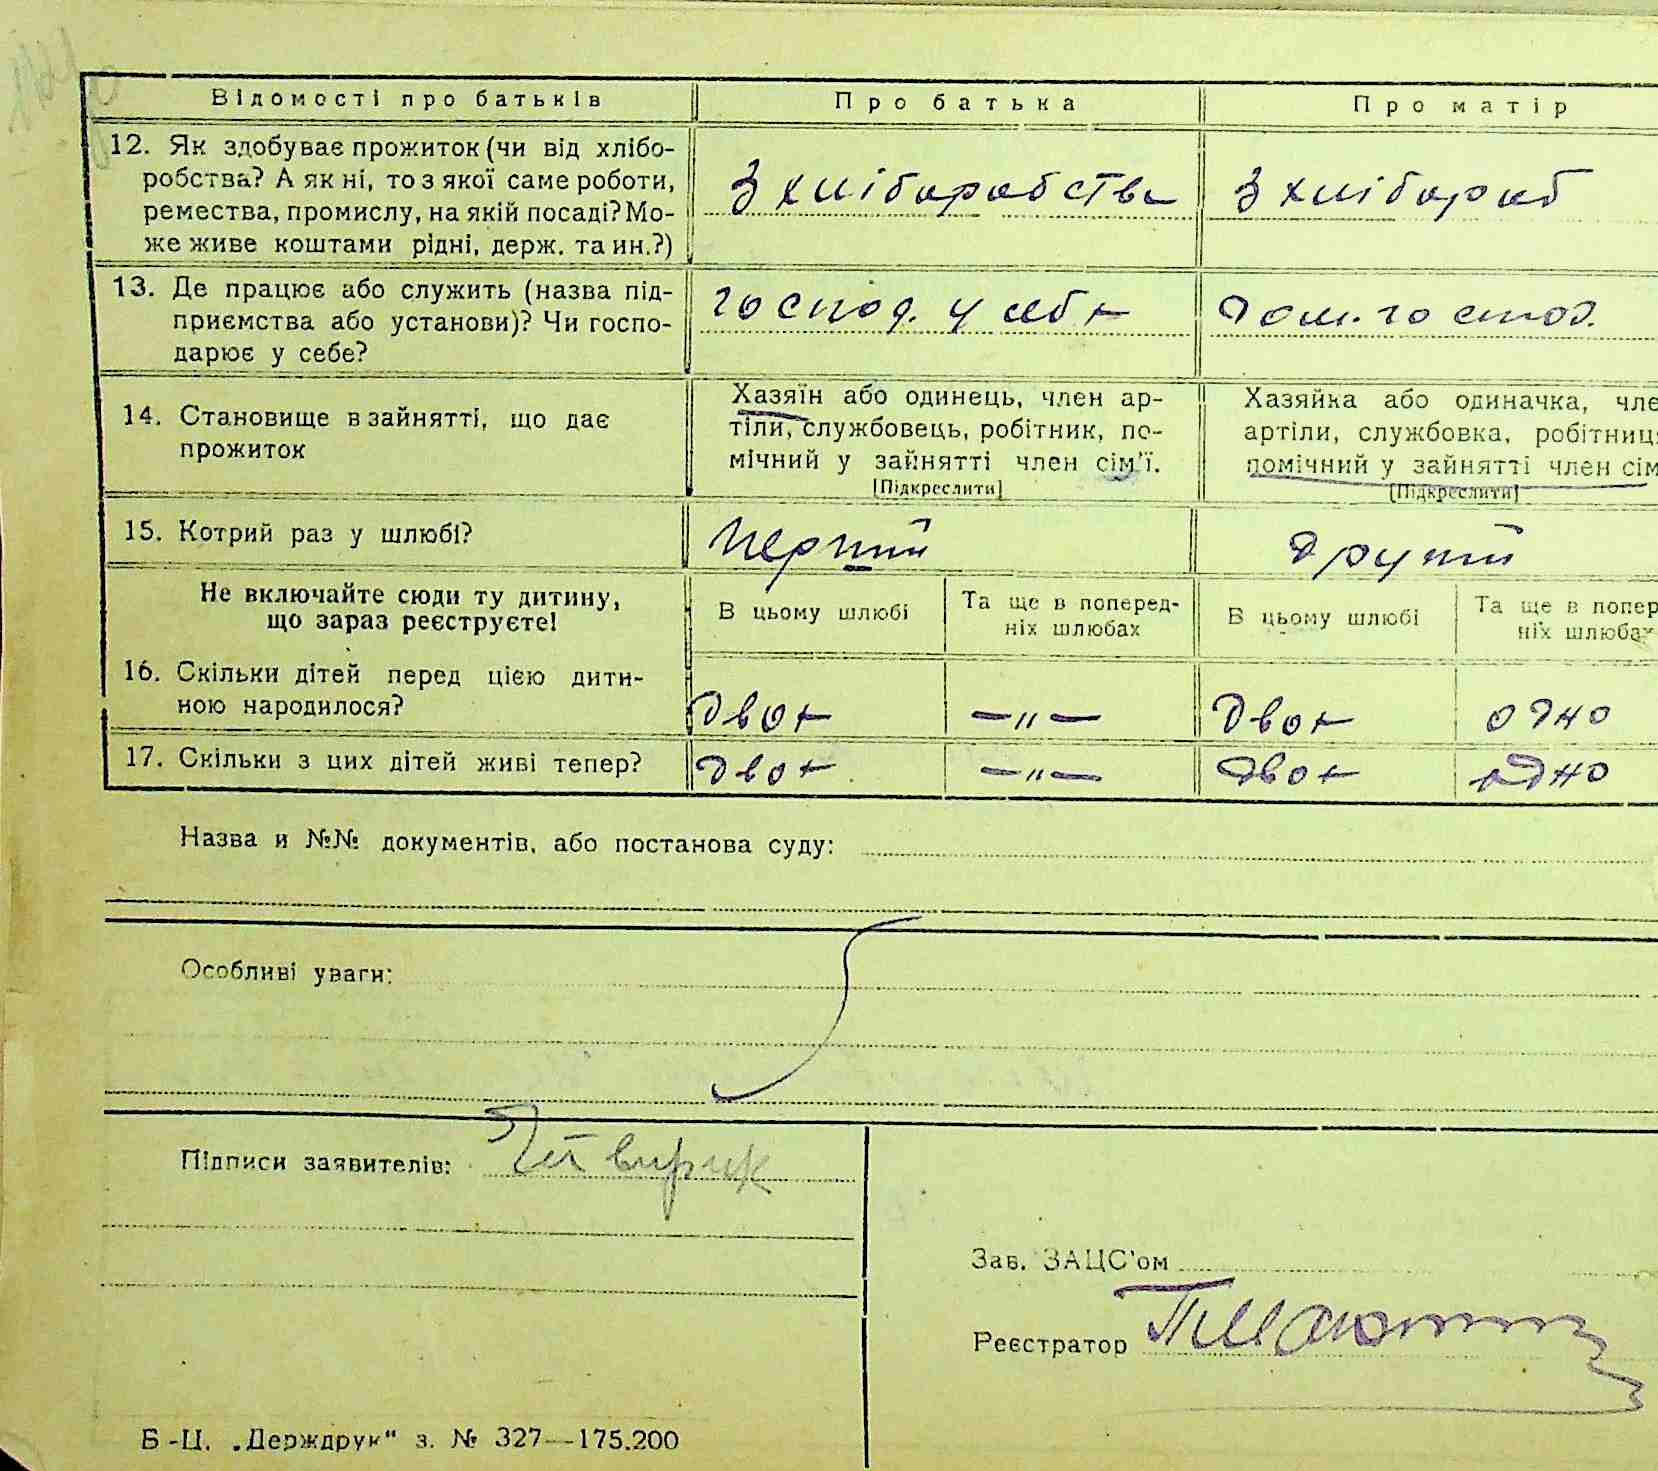 Відомості про батьків
Про батька
Про матір
12. Як здобуває прожиток (чи від хлібо-
робства? А як ні, то з якої саме роботи,
ремества, промислу, на якій посаді? Мо-
же живе коштами рідні, держ. та ин.?)
З хліборобства
З хлібороб
13. Де працює або служить (назва під-
приємства або установи)? Чи госпо-
дарює у себе?
господ. у себе
Дом. господ.
14. Становище в зайнятті, що дає
прожиток
Хазяїн або одинець, член ар-
тіли, службовець, робітник, по-
мічний у зайнятті член сім'ї.
[Підкреслити]
Хазяйка або одиначка, чле
артіли, службовка, робітниц
помічний у зайнятті член сім
[Підкреслити]
15. Котрий раз у шлюбі?
перший
другий
Не включайте сюди ту дитину,
що зараз реєструєте!
В цьому шлюбі
Та ще в поперед-
ніх шлюбах
В цьому шлюбі
Та ще в попер
ніх шлюбах
16. Скільки дітей перед цією дити-
ною народилося?
двоє
—„—
двоє
одно
17. Скільки з цих дітей живі тепер?
двоє
—„—
двоє
одно
Назва и №№ документів, або постанова суду:
Особливі уваги:
Підписи заявителів:
Зав. ЗАЦС'ом
Реєстратор
Б-Ц. „Держдрук“ з. № 327—175.200